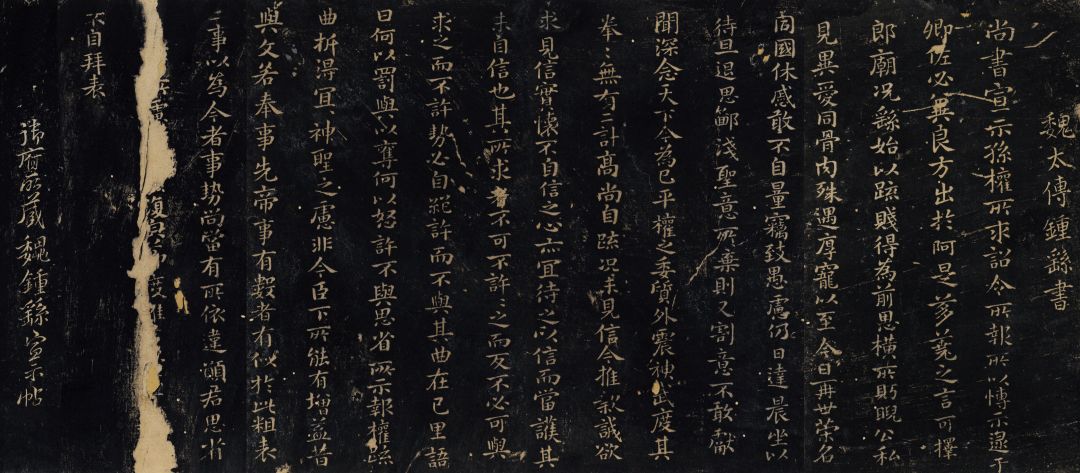 魏太傅鍾繇書
尚書宣示孫權所求詔令所報所以博示逮于
卿佐必冀良方出於阿是芻蕘之言可擇
郎廟況繇始以疏賤得為前恩橫所盼睨公私
見異愛同骨肉殊遇厚寵以至今日再世榮名
同國休慼敢不自量竊致愚慮仍日達晨坐以
待旦退思鄙淺聖意所棄則又割意不敢獻
聞深念天下今為已平權之委質外震神武度其
拳〻無有二計高尚自疏況未見信今推款誠欲
求見信實懷不自信之心亦宜待之以信而當護其
未自信也其所求者不可不許〻之而反不必可與
求之而不許勢必自絕許而不與其曲在己里語
曰何以罰與以奪何以怒許不與思省所示報權疏
曲折得宜神聖之慮非今臣下所能有增益昔
與文若奉事先帝事有數者有似於此粗表
二事以為今者事勢尚當有所依違願君思省
復
不自拜表
府所藏魏鍾繇宣示帖